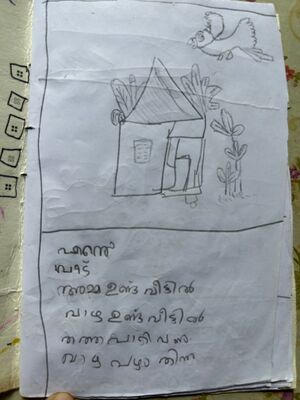 എന്റെ
വീട്
അമ്മ ഉണ്ട് വീട്ടിൽ
വാഴ ഉണ്ട് വീട്ടിൽ
തത്ത പാറി വന്നു
വാഴ പഴം തിന്നു